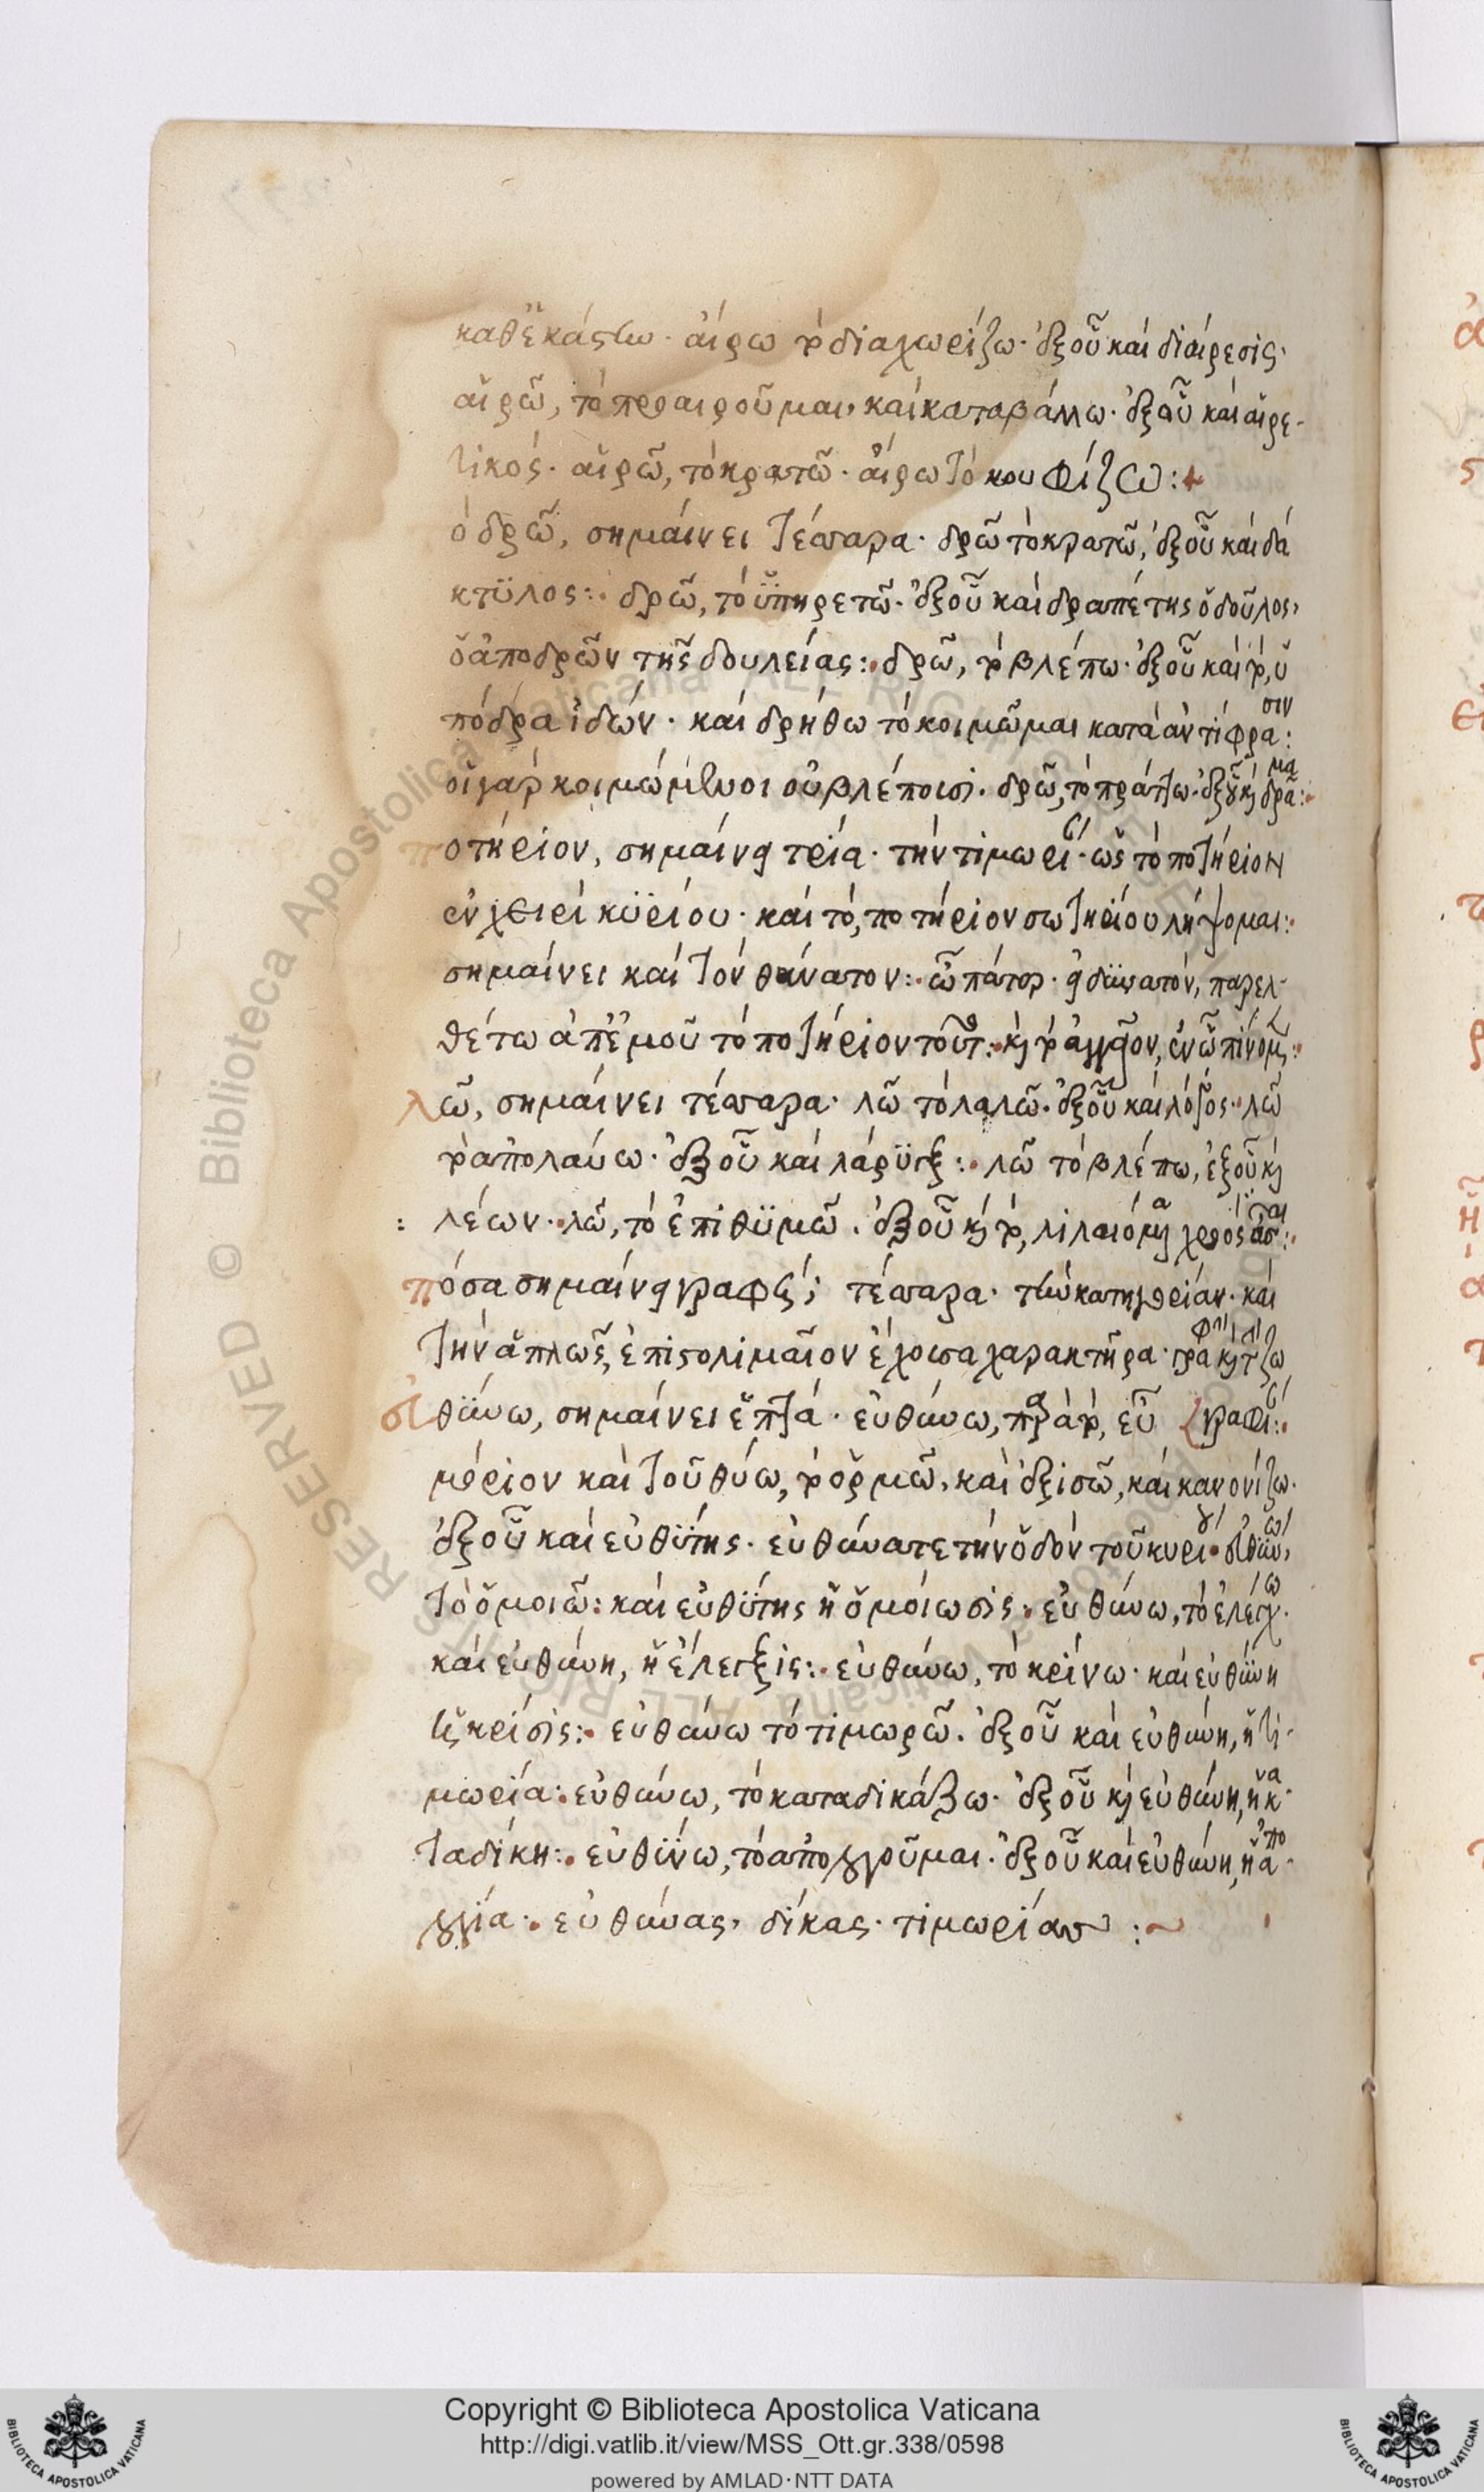 καθ' ἑκάστην· αἱρῶ τὸ διαχωρίζω· ἐξ οὗ καὶ διαίρεσις·
αἱρῶ, τὸ προαιροῦμαι, καὶ καταβάλλω· ἐξ οὗ καὶ αἱρε-
τικός· αἱρῶ, τὸ κρατῶ· αἴρω τὸ κουφίζω:+
ὁ δρῶ, σημαίνει τέσσαρα· δρῶ τὸ κρατῶ, ἐξ οὗ καὶ δά
κτυλος:· δρῶ, τὸ ὑπηρετῶ· ἐξ οὗ καὶ δραπέτης ὁ δοῦλος,
ὁ ἀποδρῶν τῆς δουλείας:· δρῶ, τὸ βλέπω· ἐξ οὗ καὶ τὸ, ὑ
πόδρα ἰδών· καὶ δρήθω τὸ κοιμῶμαι κατὰ ἀντίφρασιν:
οἱ γὰρ κοιμώμενοι οὐ βλέπουσι· δρῶ, τὸ πράττω· ἐξ οὗ καὶ δρᾶμα:·
ποτήριον, σημαίνει τρία· τὴν τιμωρίαν· ὡς τὸ ποτήριον
ἐν χειρὶ κυρίου· καὶ τὸ, ποτήριον σωτηρίου λήψομαι:·
σημαίνει καὶ τὸν θάνατον:· ὦ πάτερ· εἰ δυνατόν, παρελ-
θέτω ἀπ' ἐμοῦ τὸ ποτήριον τοῦτο:· καὶ τὸ ἀγγεῖον, ἐν ᾧ πίνομεν:·
λῶ, σημαίνει τέσσαρα· λῶ τὸ λαλῶ· ἐξ οὗ καὶ λόγος·· λῶ
τὸ ἀπολαύω· ἐξ οὗ καὶ λάρυγξ:· λῶ τὸ βλέπω, ἐξ οὗ καὶ
: λέων·· λῶ, τὸ ἐπιθυμῶ· ἐξ οὗ καὶ τὸ, λιλαιόμενα χροὸς ἆσαι:·
πόσα σημαίνει γραφή; τέσσαρα· τὴν κατηγορίαν· καὶ
τὴν ἁπλῶς, ἐπιστολιμαῖον ἔχουσα χαρακτῆρα·
εὐθύνω, σημαίνει ἑπτά· εὐθύνω, παρὰ τὸ, εὖ
μόριον καὶ τοῦ θύω, τὸ ὁρμῶ, καὶ ἐξισῶ, καὶ κανονίζω·
ἐξ οὗ καὶ εὐθύτης· εὐθύνατε τὴν ὁδὸν τοῦ κυρίου· εὐθύνω,
τὸ ὁμοιῶ: καὶ εὐθύτης ἡ ὁμοίωσις· εὐθύνω, τὸ ἐλέγχω·
καὶ εὐθύνη, ἡ ἔλεγξις:· εὐθύνω, τὸ κρίνω· καὶ εὐθύνη
ἡ κρίσις:· εὐθύνω τὸ τιμωρῶ· ἐξ οὗ καὶ εὐθύνη, ἡ τι-
μωρία:· εὐθύνω, τὸ καταδικάζω· ἐξ οὗ καὶ εὐθύνη, ἡ κα-
ταδίκη:· εὐθύνω, τὸ ἀπολογοῦμαι· ἐξ οὗ καὶ εὐθύνη, ἡ ἀπο-
λογία·· εὐθύνας, δίκας· τιμωρίας :~
Copyright © Biblioteca Apostolica Vaticana
http://digi.vatlib.it/view/MSS_Ott.gr.338/0598
powered by AMLAD·NTT DATA